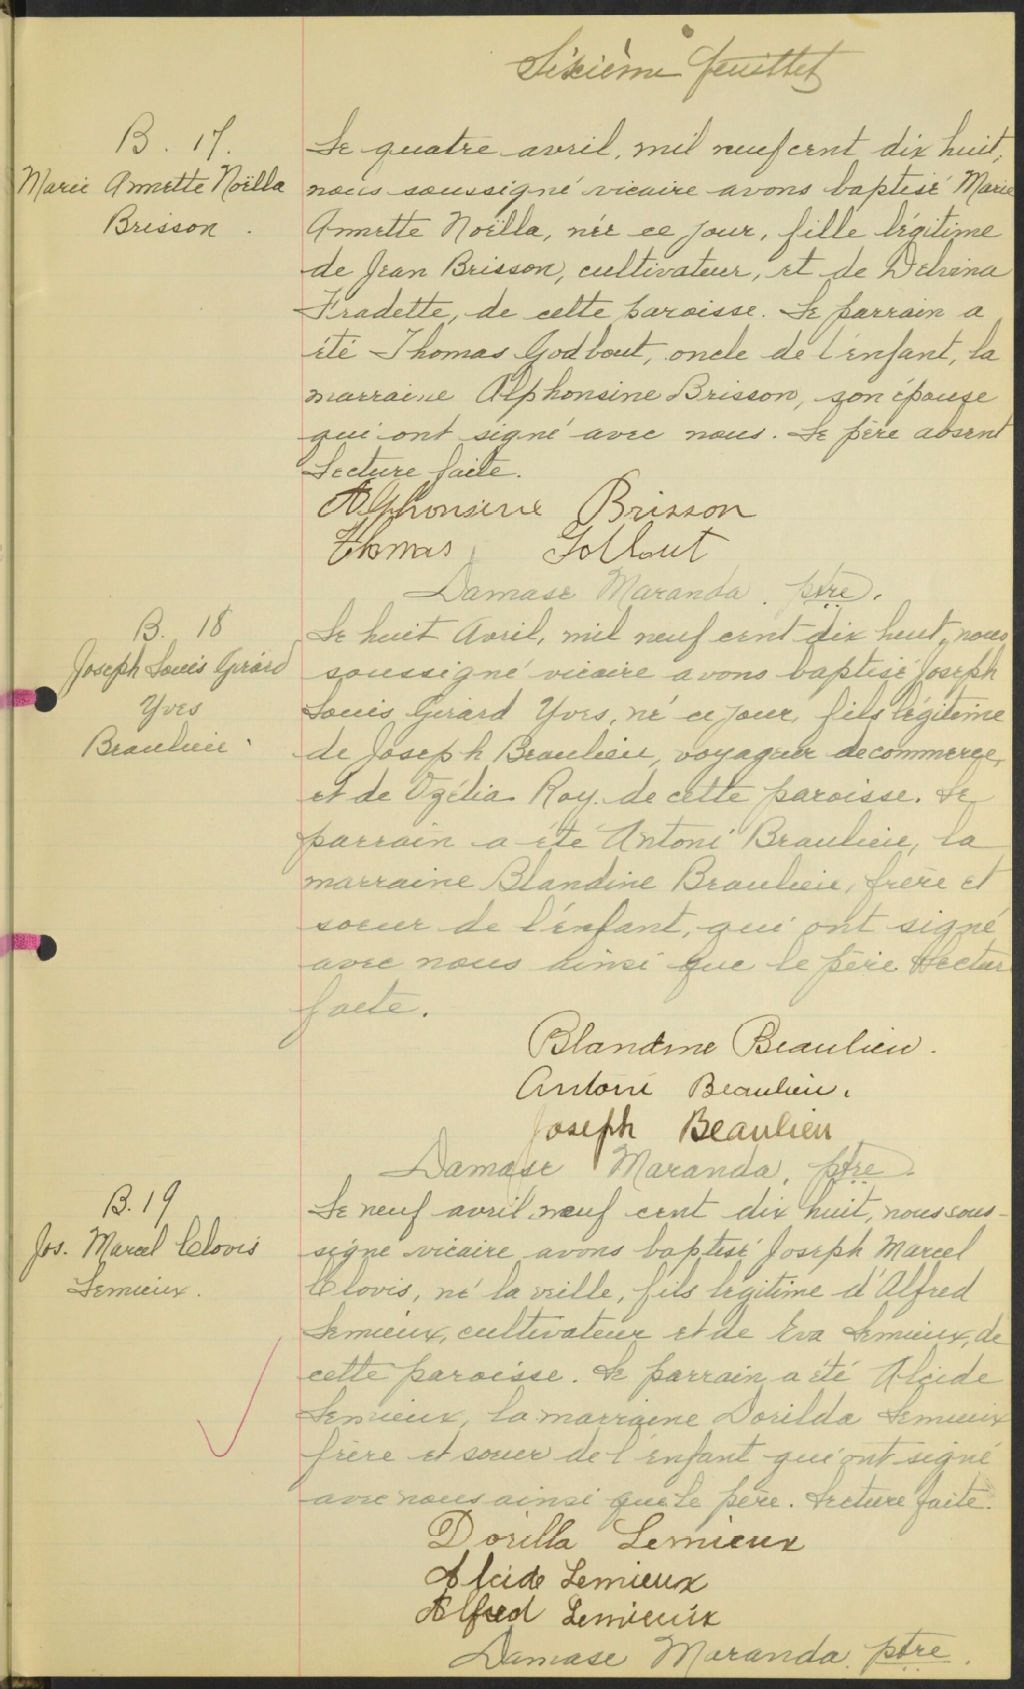 Sixième feuillet
B. 17.
Marie Annette Noëlla
Brisson.
Le quatre avril, mil neuf cent dix huit,
nous soussigné vicaire avons baptisé Marie
Annette Noëlla, née ce jour, fille légitime
de Jean Brisson, cultivateur, et de Delvina
Fradette, de cette paroisse. Le parrain a
été Thomas Godbout, oncle de l'enfant, la
marraine Alphonsine Brisson, son épouse
qui ont signé avec nous. Le père absent
Lecture faite.
Alphonsine Brisson
Thomas
Damase Maranda, ptre.
B. 18
Joseph Louis Girard
Yves
Beaulieu.
Le huit Avril, mil neuf cent dix huit, nous
soussigné vicaire avons baptisé Joseph
Louis Girard Yves, né ce jour, fils légitime
de Joseph Beaulieu, voyageur de commerce,
et de Ozélia Roy de cette paroisse. Le
parrain a été Antoni Beaulieu, la
marraine Blandine Beaulieu, frère et
soeur de l'enfant, qui ont signé
avec nous ainsi que le père. Lecture
faite.
Blandine Beaulieu.
Antoni Beaulieu.
Joseph Beaulieu
Damase Maranda, ptre.
B. 19
Jos. Marcel Clovis
Lemieux.
Le neuf avril, neuf cent dix huit, nous sous-
signé vicaire avons baptisé Joseph Marcel
Clovis, né la veille, fils légitime d'Alfred
Lemieux, cultivateur et de Eva Lemieux, de
cette paroisse. Le parrain a été Alcide
Lemieux, la marraine Dorilda Lemieux
frère et soeur de l'enfant qui ont signé
avec nous ainsi que le père. Lecture faite.
Dorilla Lemieux
Alcide Lemieux
Alfred Lemieux
Damase Maranda, ptre.